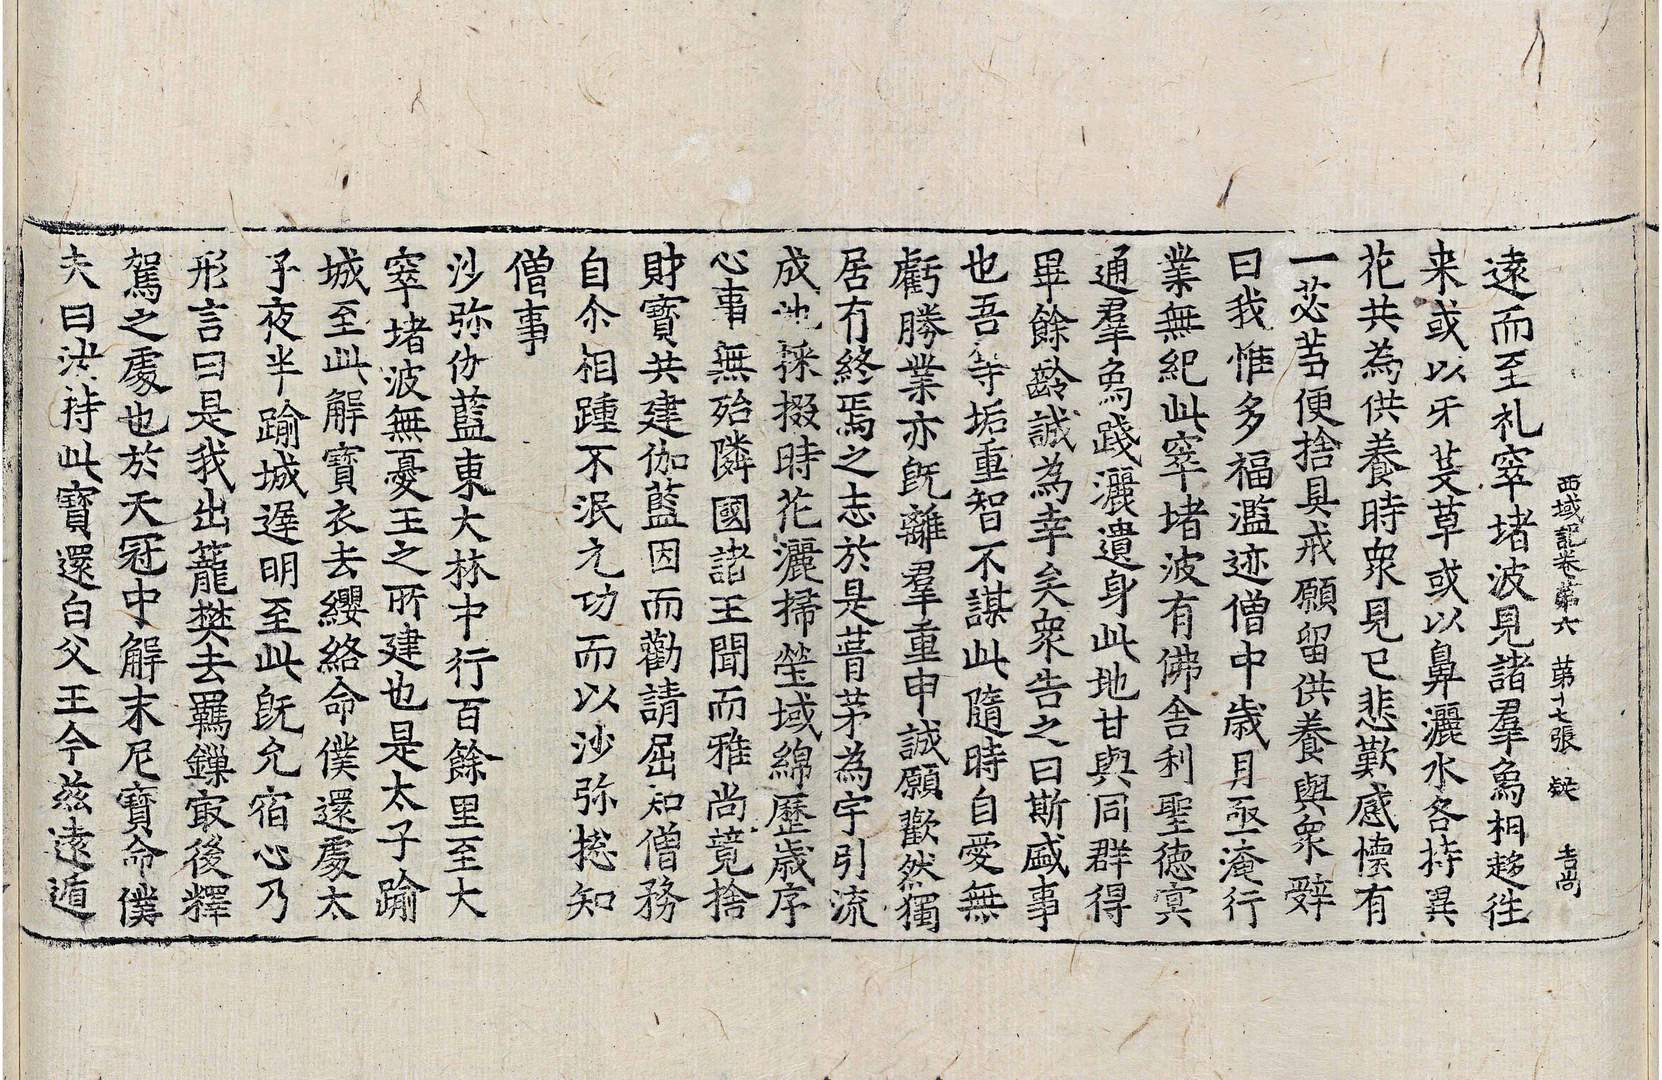 西域記卷第六 第十七張 㲉 吉尚
遠而至礼窣堵波見諸羣𤉡相趍往
来或以牙芟草或以鼻灑水各持異
花共為供養時衆見已悲歎感懷有
一苾芻便捨具戒願留供養與衆辤
曰我惟多福濫迹僧中歳月亟淹行
業無紀此窣堵波有佛舍利聖德冥
通羣𤉡踐灑遺身此地甘與同群得
畢餘齡誠為幸矣衆告之曰斯盛事
也吾等垢重智不謀此隨時自愛無
虧勝業亦旣離羣重申誠願歡然獨
居有終焉之志於是葺茅為宇引流
成池採掇時花灑掃瑩域綿歷歳序
心事無殆隣國諸王聞而雅尚競捨
財寶共建伽藍因而勸請屈知僧務
自尒相踵不泯元功而以沙弥揔知
僧事
沙弥伽藍東大林中行百餘里至大
窣堵波無憂王之所建也是太子踰
城至此解寶衣去纓絡命僕還處太
子夜半踰城遅明至此旣允宿心乃
形言曰是我出籠樊去羈鏁㝡後釋
駕之處也於天冠中解末尼寶命僕
夫曰汝持此寶還白父王今兹遠遁